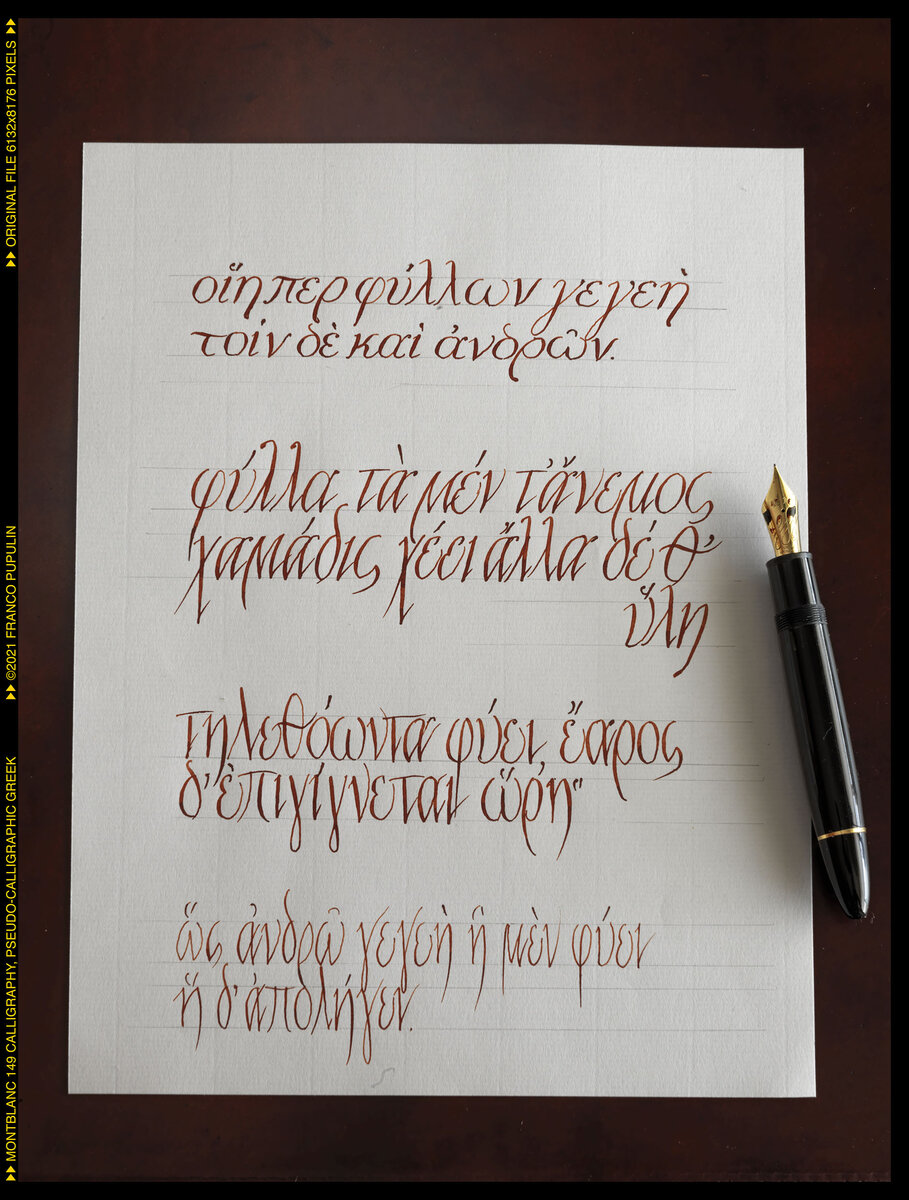 οἵη περ φύλλων γεγεὴ
τοίν δὲ καὶ ἀνδρῶν.
φύλλα τὰ μέν τ’ἄνεμος
χαμάδις χέει ἄλλα δέ θ’
ὕλη
τηλεθόωντα φύει, ἔαρος
δ’ἐπιγίγνεται ὥρη"
ὥς ἀνδρῶ γεγεὴ ἣ μὲν φύει
ἥ δ’ἀπολήγει.
▶▶ MONTBLANC 149 CALLIGRAPHY, PSEUDO-CALLIGRAPHIC GREEK ▶▶ ©2021 FRANCO PUPULIN ▶▶ ORIGINAL FILE 6132x8176 PIXELS ▶▶